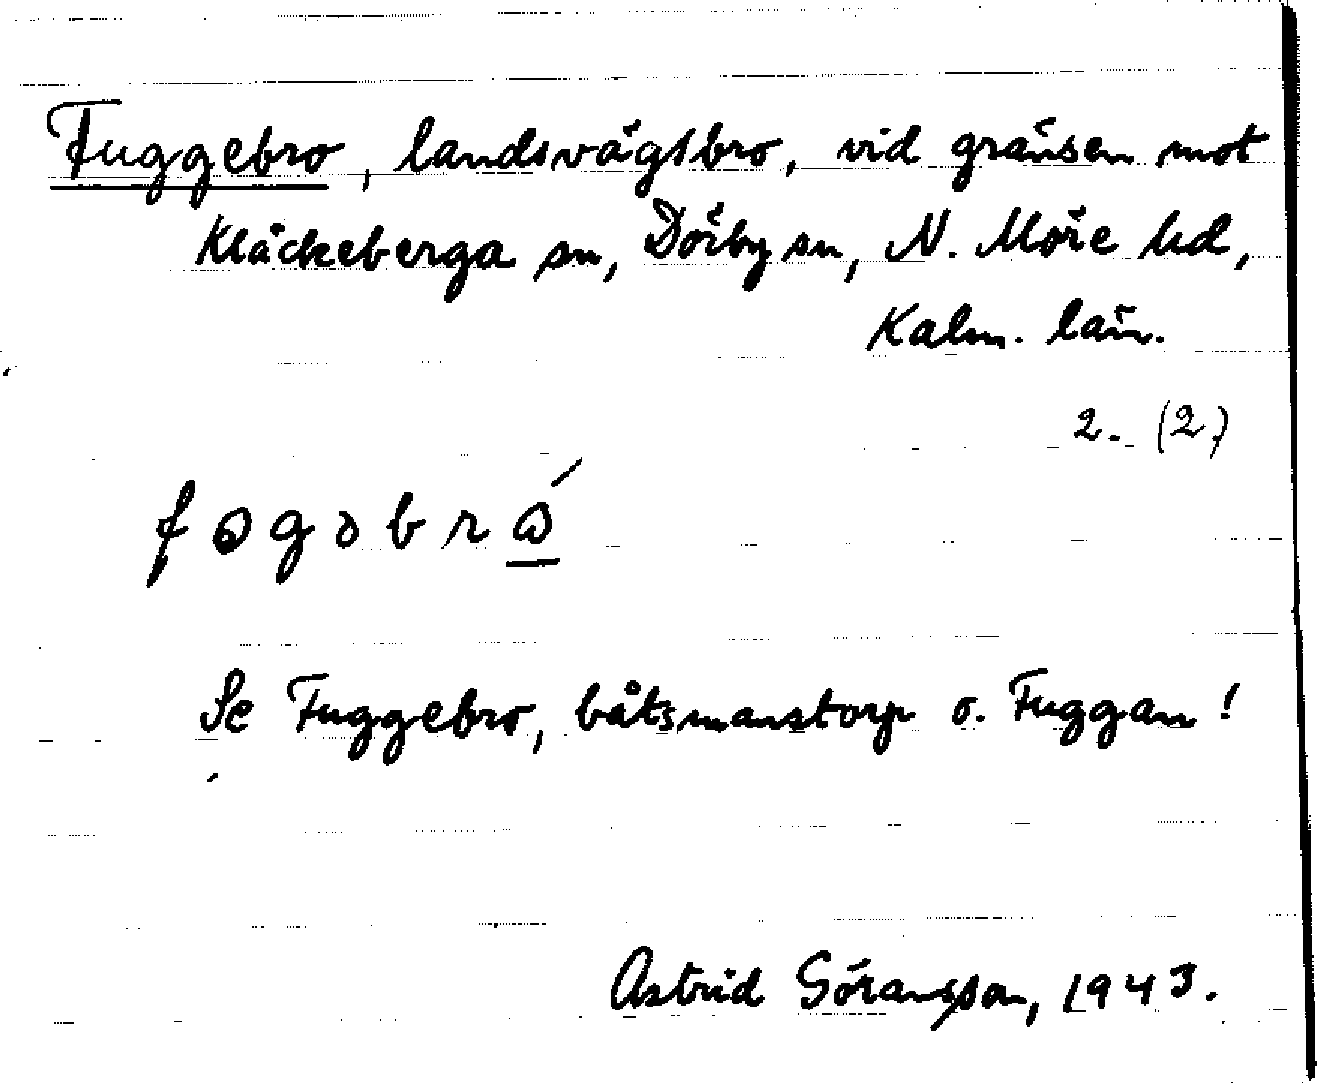 Fuggebro, landsvägsbro, vid gränsen mot
Kläckeberga sn, Dörby sn, N. Möre hd,
Kalm. län.
2. (2)
fɵgəbrɷ̲́
Se Fuggebro, båtsmanstorp o. Fuggan!
Astrid Göransson, 1943.